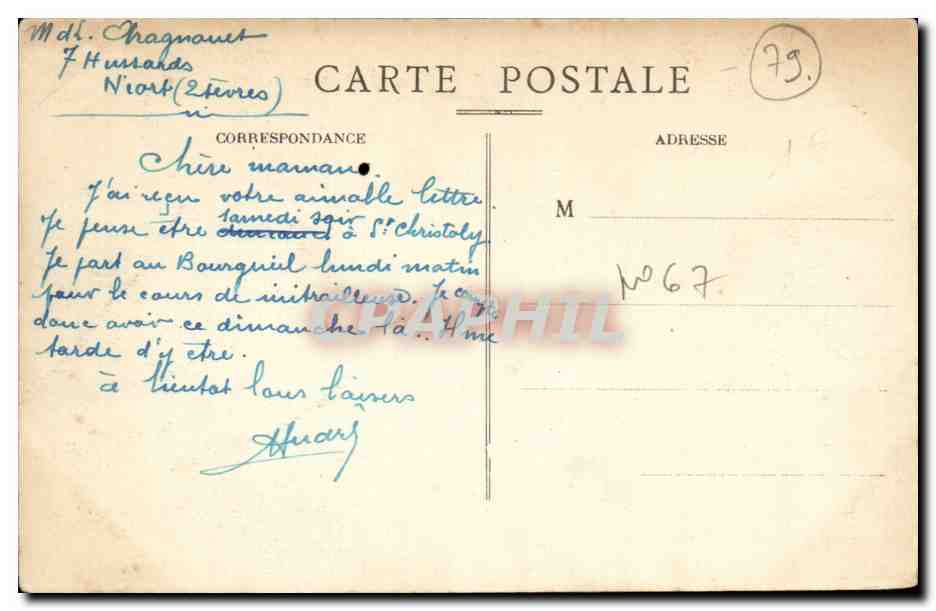 Mdl. Chagnouet
7 Hussards
Niort (2 Sèvres)
CARTE POSTALE
79.
CORRESPONDANCE
ADRESSE
Chère maman.
J'ai reçu votre aimable lettre.
Je pense être samedi soir à St Christoly.
Je part au Bourgueil lundi matin
pour le cours de mitrailleuse. Je compte
donc avoir ce dimanche là.. Il me
tarde d'y etre.
à bientot bons baisers
André
M
No 67.
CPAPHIL